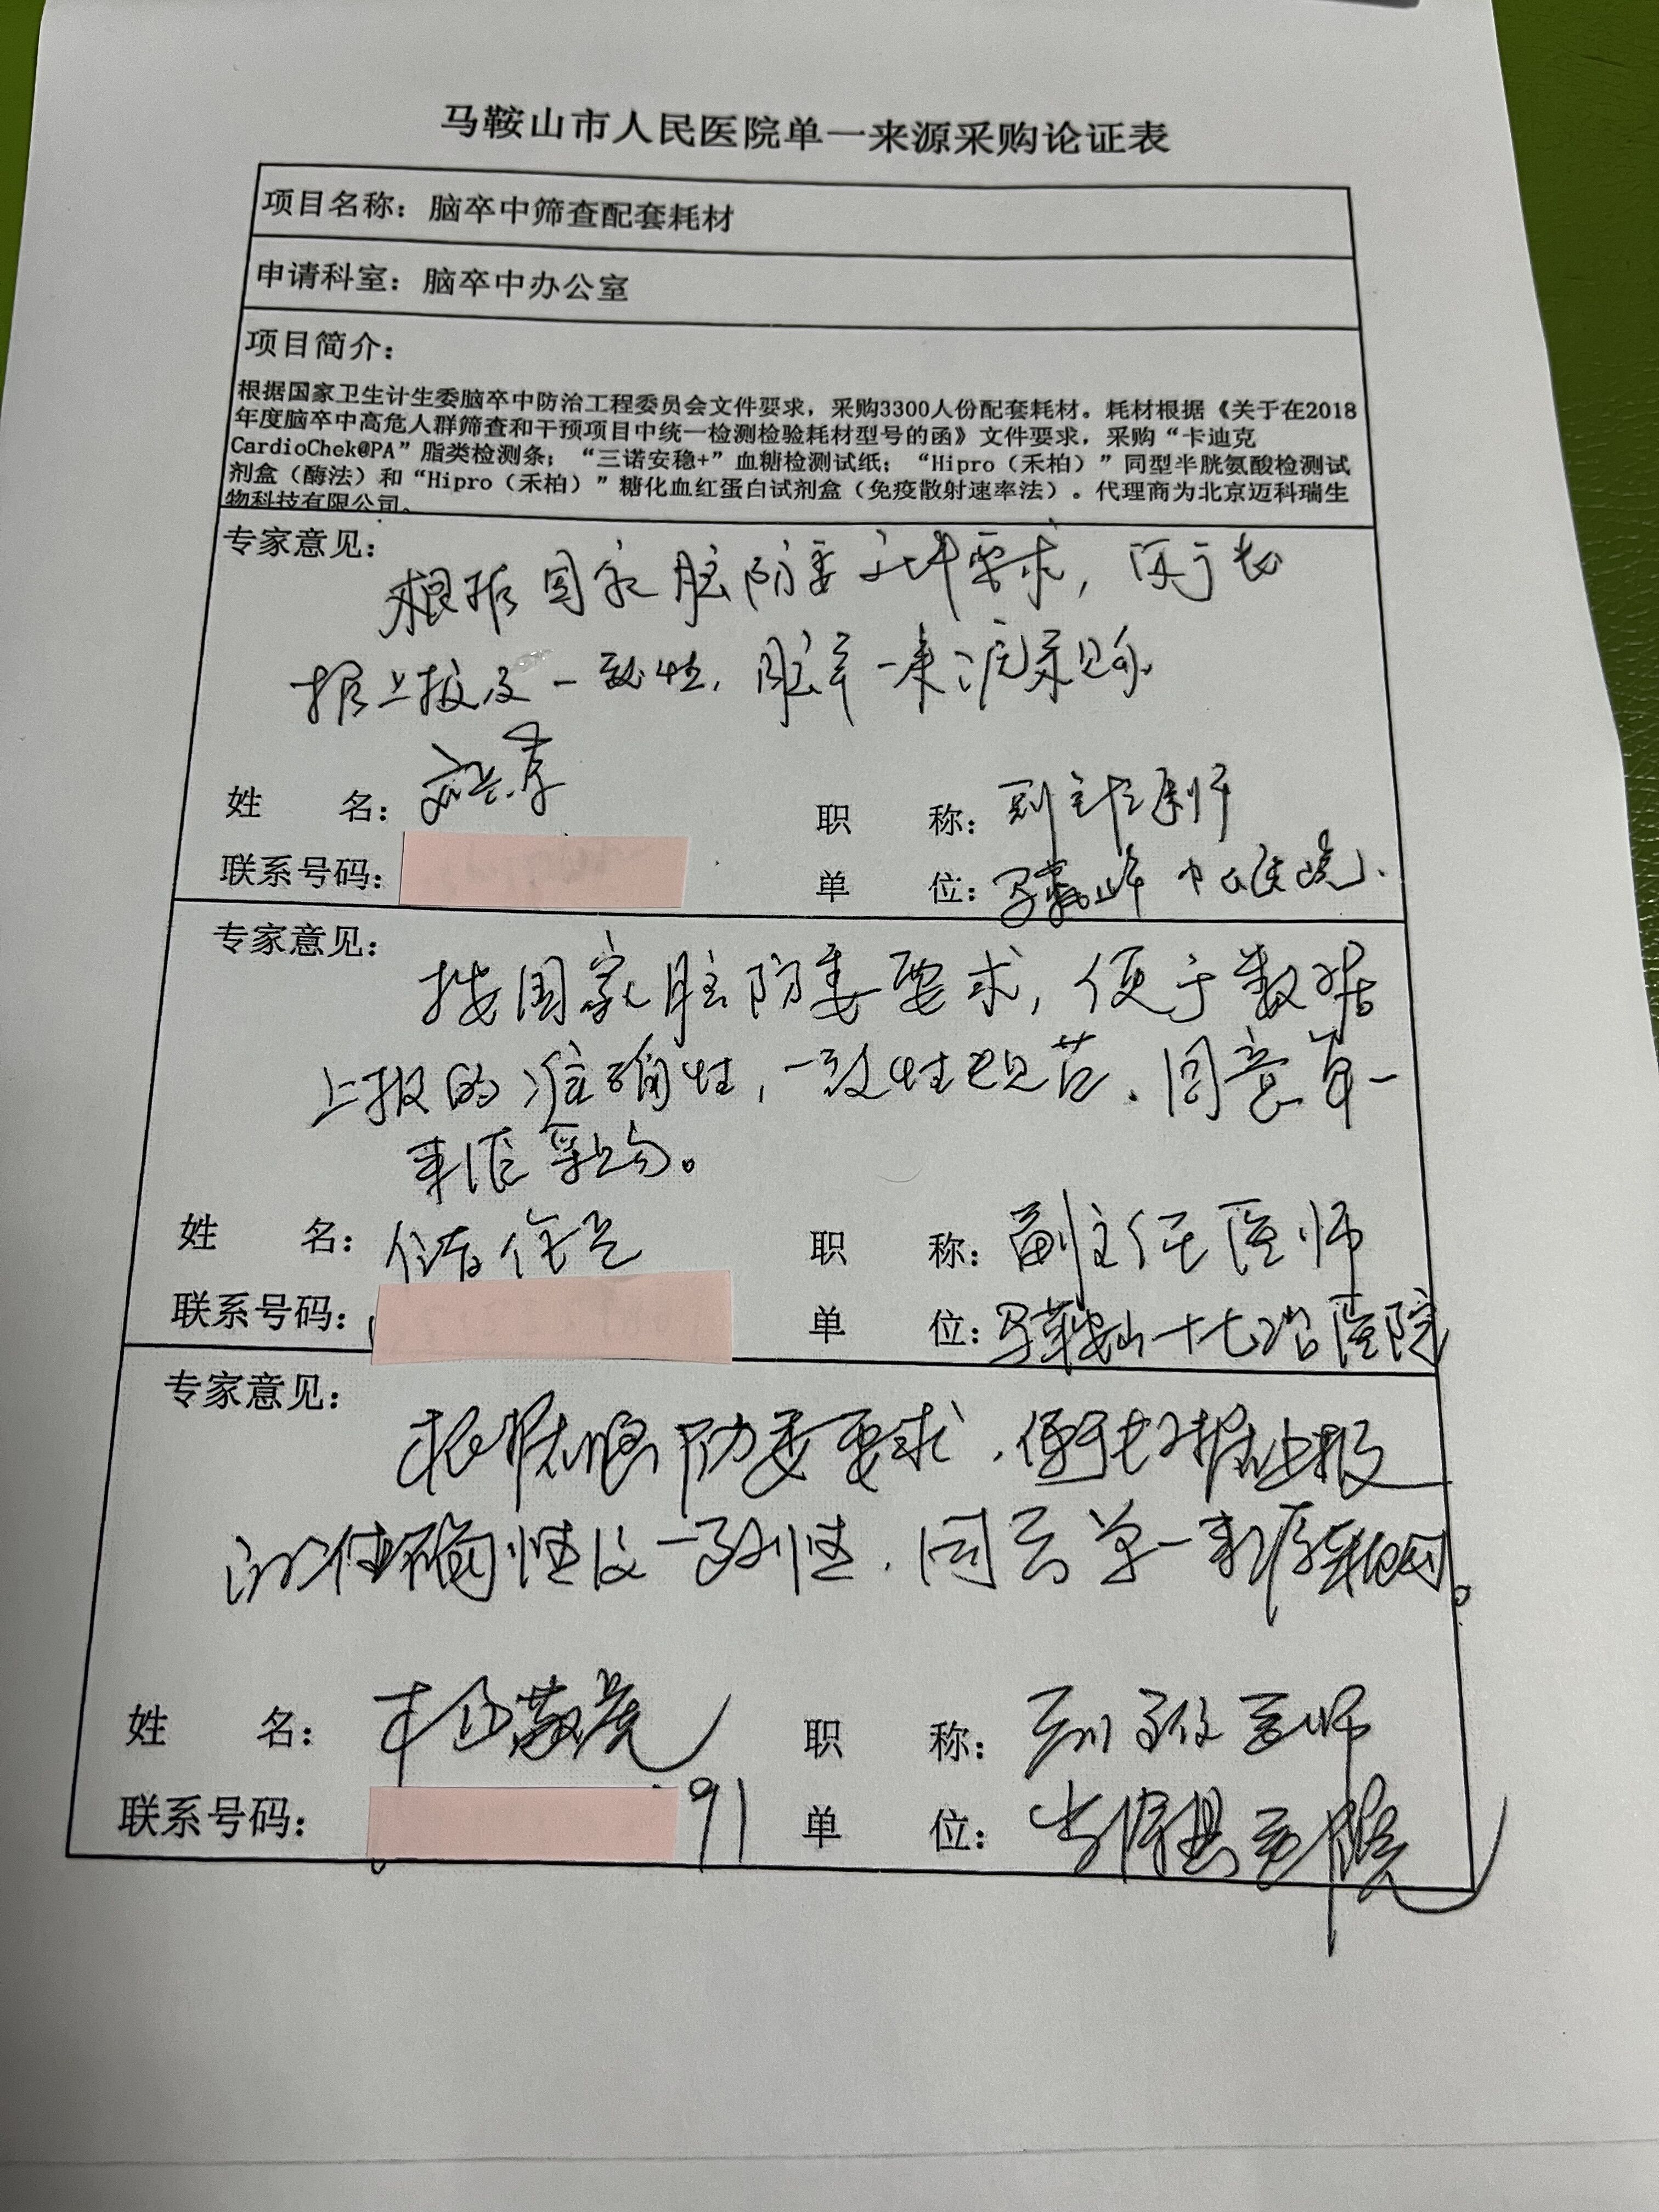 马鞍山市人民医院单一来源采购论证表
项目名称：脑卒中筛查配套耗材
申请科室：脑卒中办公室
项目简介：
根据国家卫生计生委脑卒中防治工程委员会文件要求，采购3300人份配套耗材。耗材根据《关于在2018
年度脑卒中高危人群筛查和干预项目中统一检测检验耗材型号的函》文件要求，采购“卡迪克
CardioChek@PA”脂类检测条；“三诺安稳+”血糖检测试纸；“Hipro（禾柏）”同型半胱氨酸检测试
剂盒（酶法）和“Hipro（禾柏）”糖化血红蛋白试剂盒（免疫散射速率法）。代理商为北京迈科瑞生
物科技有限公司。
专家意见：
根据国家脑防委文件要求，便于数
据上报及一致性，单一来源采购
姓 名： 职 称：副主任医师
联系号码： 单 位：马鞍山市中医院
专家意见：
按国家脑防委要求，便于数据
上报的准确性，一致性规范，同意单一
来源采购。
姓 名： 职 称：副主任医师
联系号码： 单 位：马鞍山十七冶医院
专家意见：
根据脑防委要求，便于数据上报
的准确性及一致性，同意单一来源采购。
姓 名： 职 称：副主任医师
联系号码： 91 单 位：